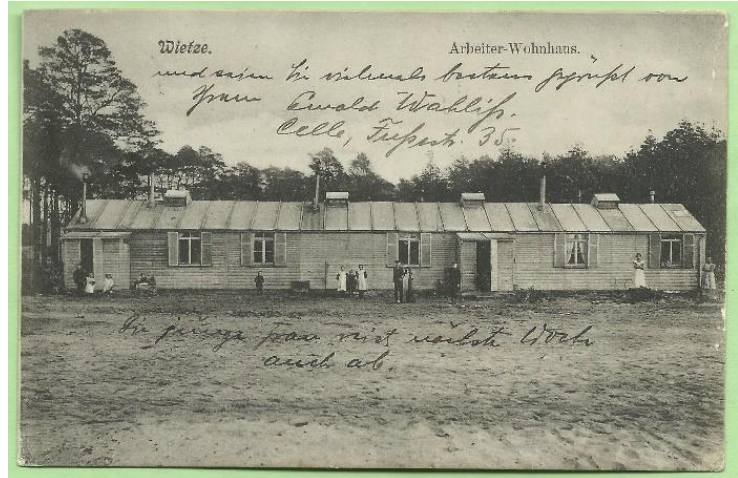 Wietze.
Arbeiter-Wohnhaus.
und seien Sie vielmals bestens gegrüßt von
Ewald Wahliß.
Celle, 35.
Die junge reist nächste Woche
auch ab.